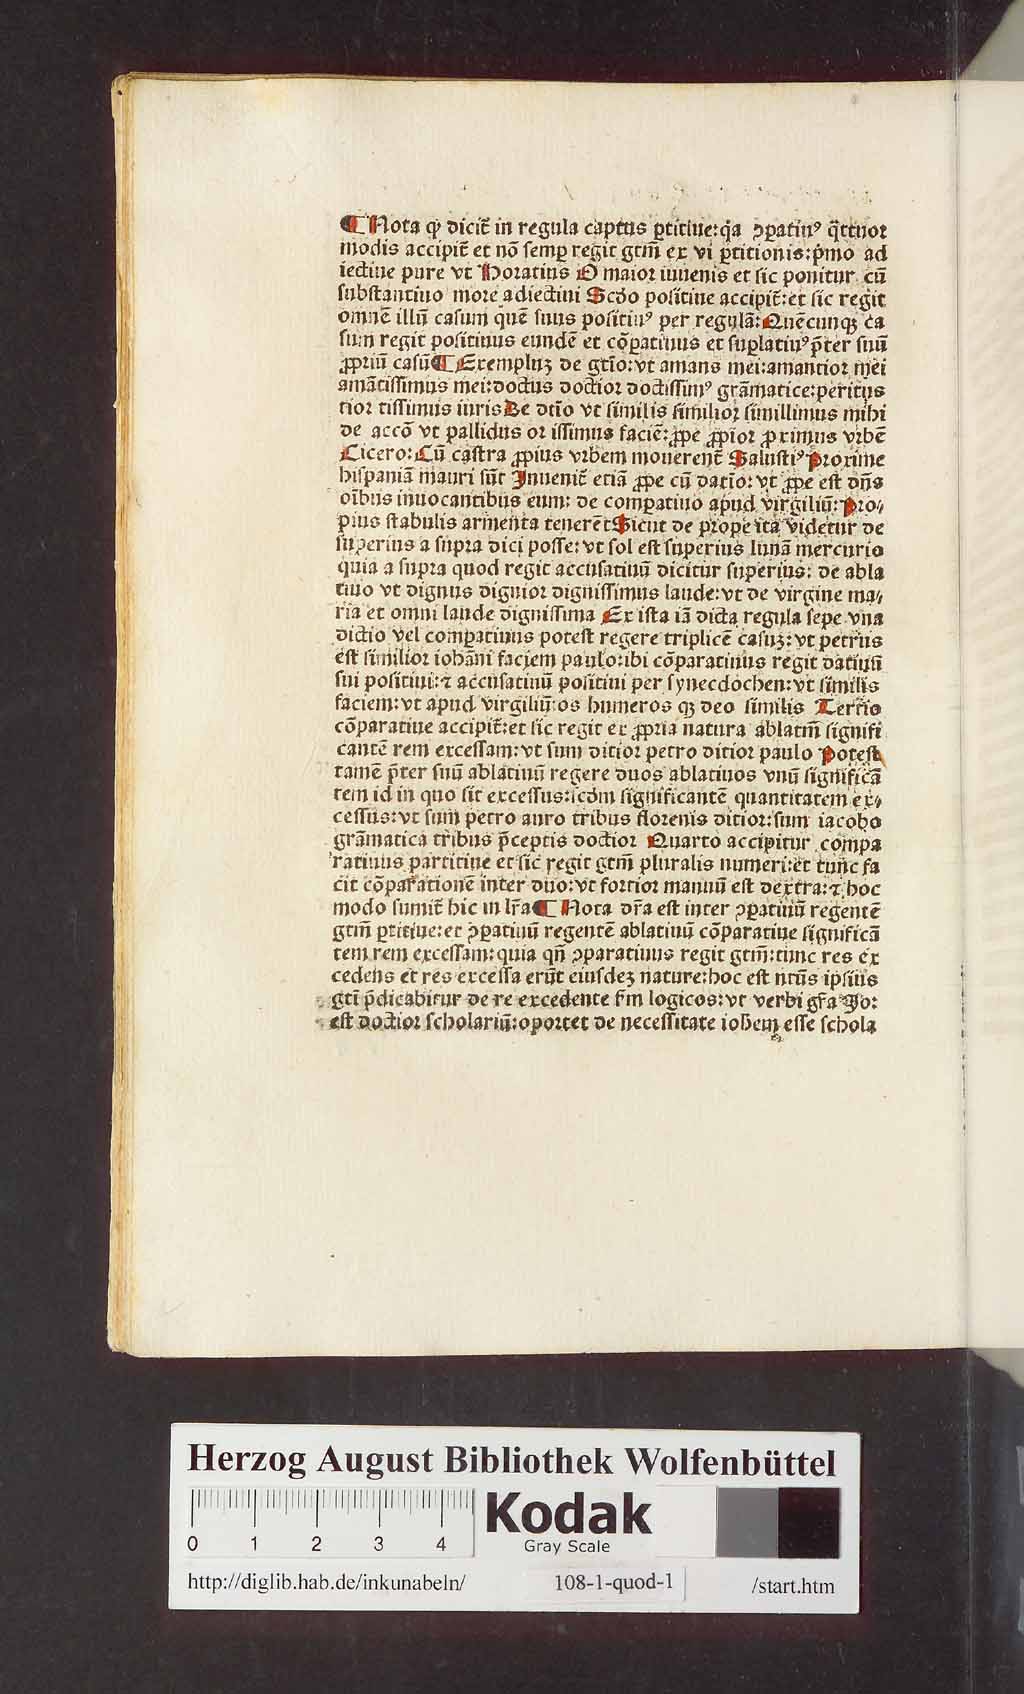 ¶ Nota ꝙ dicit̃ in regula captus ꝑtitiue: q̇a ꝯparatiuꝰ q̃ttuor
modis accipit̃ et nõ semꝑ regit gtm̃ ex vi ꝑtitionis: p̃mo ad
iectiue pure vt Horatius O maior iuuenis et sic ponitur cũ
substantiuo more adiectiui Scd̃o positiue accipit̃: et sic regit
omnẽ illũ casum quẽ suus positiuꝰ per regulã: Quẽcunqꝫ ca
sum regit positiuus eundẽ et cõꝑatiuus et suꝑlatiuꝰ p̃ter suũ
ꝓpriũ casũ ¶ Exempluꝫ de gtĩo: vt amans mei: amantior mei
amãtissimus mei: doctus doctior doctissimꝰ grãmatice: peritus
tior tissimus iuris De dtĩo vt similis similior simillimus mihi
de accõ vt pallidus or issimus faciẽ: ꝓpe ꝓpior proximus vrbẽ
Cicero: Cũ castra ꝓpius vrbem mouerent̃ Salustiꝰ Proxime
hispaniã mauri sũt Inuenit̃ etiã ꝓpe cũ datio: vt ꝓpe est dñs
oĩbus inuocantibus eum: de comꝑatiuo apud virgiliũ: Pro⸗
pius stabulis armenta tenerẽt Sicut de prope ita videtur de
superius a supra dici posse: vt sol est superius lunã mercurio
quia a supra quod regit accusatiuũ dicitur superius: de abla
tiuo vt dignus dignior dignissimus laude: vt de virgine ma⸗
ria et omni laude dignissima Ex ista iã dicta regula sepe vna
dictio vel comꝑatiuus potest regere triplicẽ casuꝫ: vt petrus
est similior iohãni faciem paulo: ibi cõparatiuus regit datiuũ
sui positiui: ⁊ accusatiuũ positiui per synecdochen: vt similis
faciem: vt apud virgiliũ: os humeros qꝫ deo similis Tertio
cõparatiue accipit̃: et sic regit ex ꝓpria natura ablatm̃ signifi
cantẽ rem excessam: vt sum ditior petro ditior paulo Potest
tamẽ p̃ter suũ ablatiuũ regere duos ablatiuos vnũ significã
tem id in quo sit excessus: scd̃m significantẽ quantitatem ex⸗
cessus: vt sum petro auro tribus florenis ditior: sum iacobo
grãmatica tribus p̃ceptis doctior Quarto accipitur compa
ratiuus partitiue et sic regit gtm̃ pluralis numeri: et tunc fa
cit cõparationẽ inter duo: vt fortior manuũ est dextra: ⁊ hoc
modo sumit̃ hic in lr̃a ¶ Nota dr̃a est inter ꝯꝑatiuũ regentẽ
gtm̃ ꝑtitiue: et ꝯꝑatiuũ regentẽ ablatiuũ cõparatiue significã
tem rem excessam: quia qñ ꝯparatiuus regit gtm̃: tunc res ex
cedens et res excessa erũt eiusdeꝫ nature: hoc est ntũs ipsius
gtĩ p̃dicabitur de re excedente fm logicos: vt verbi gr̃a Jo:
est doctior scholariũ: oportet de necessitate iohem esse schola
Herzog August Bibliothek Wolfenbüttel
0 1 2 3 4
Kodak
Gray Scale
http://diglib.hab.de/inkunabeln/ 108-1-quod-1 /start.htm